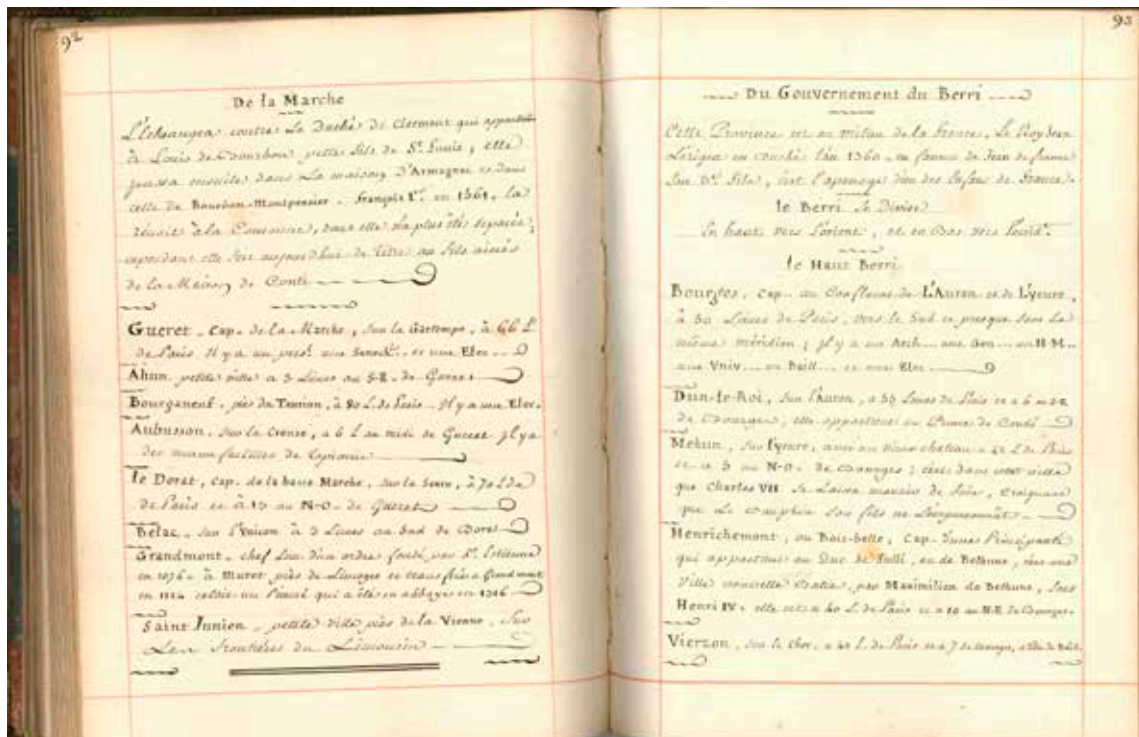 92
De la Marche
L'échangea contre Le Duché de Clermont qui
à Louis de Bourbon petit fils de St. Louis, elle
passa ensuite dans La maison D'Armagnac et dans
celle de Bourbon-Montpensier. François I.er en la
réunit à la Couronne, dont elle n'a plus été separée;
cependant elle sert aujourd'hui de titre au fils
de la Maison de Conti
Gueret. Cap. de la Marche, Sur la Gartempe, à 66 L.
de Paris Il y a un pres.l une et une Elec
Ahun petite ville a 3 Lieues au S-E. de Gueret
Bourganeuf, près du Taurion, à 80 L. de Paris Il y a une Elec.
Aubusson, Sur la Creuse, a 6 L au midi de Gueret Il y a
des manufactures de tapisserie
le Dorat, Cap. de la basse Marche, Sur la Sevre, à 70 L de
de Paris et à 13 au N-O. de Gueret
Belac, sur l'Vnicon à 3 Lieues au Sud de Dorat
Grandmont, chef Lieu d'un ordre fondé par St. Estienne
en 1076 à Muret près de Limoges et transféré a Grandmont
en 1124 un Prieuré qui a été en abbaye en
Saint Junien, petite ville près de la Vienne, Sur
Les frontières du Limousin
93
Du Gouvernement du Berri
Cette Province est au milieu de la france, Le Roy Jean
L'érigea en Duché l'an 1360. en faveur de Jean de france
Son fils, c'est l'apanage d'un des Enfans de france.
le Berri Se Divise
En haut vers l'orient, et en Bas vers l'occid.t
le Haut Berri
Bourges, Cap. au Confluent de L'Auron et de L'yeure,
à Lieues de Paris, vers le Sud et presque sous Le
même méridien; Il y a un Arch... une Gen... un H-M...
une Univ... un Baill... et une Elec
Dun-le-Roi, Sur l'Auron, a Lieues de Paris et a 6 au S-E
de Bourges, elle appartient au Prince de Condé
Mehun, Sur l'yeure, avec un vieux chateau a L de Paris
et a 3 au N-O. de Bourges; c'est dans cette ville
que Charles VII Se Laissa mourir de faim, Craignant
que Le Dauphin Son fils ne L'empoisonnât
Henrichemont, ou Bois-belle, Cap. d'une Principauté
qui appartient au Duc de Sulli, et de Bethune, c'est une
Ville nouvelle Batie, par Maximilien de Bethune, Sous
Henri IV. elle est a 40 L. de Paris et a au N-E. de Bourges.
Vierzon, Sur le Cher, a L. de Paris et a 7 de Bourges,